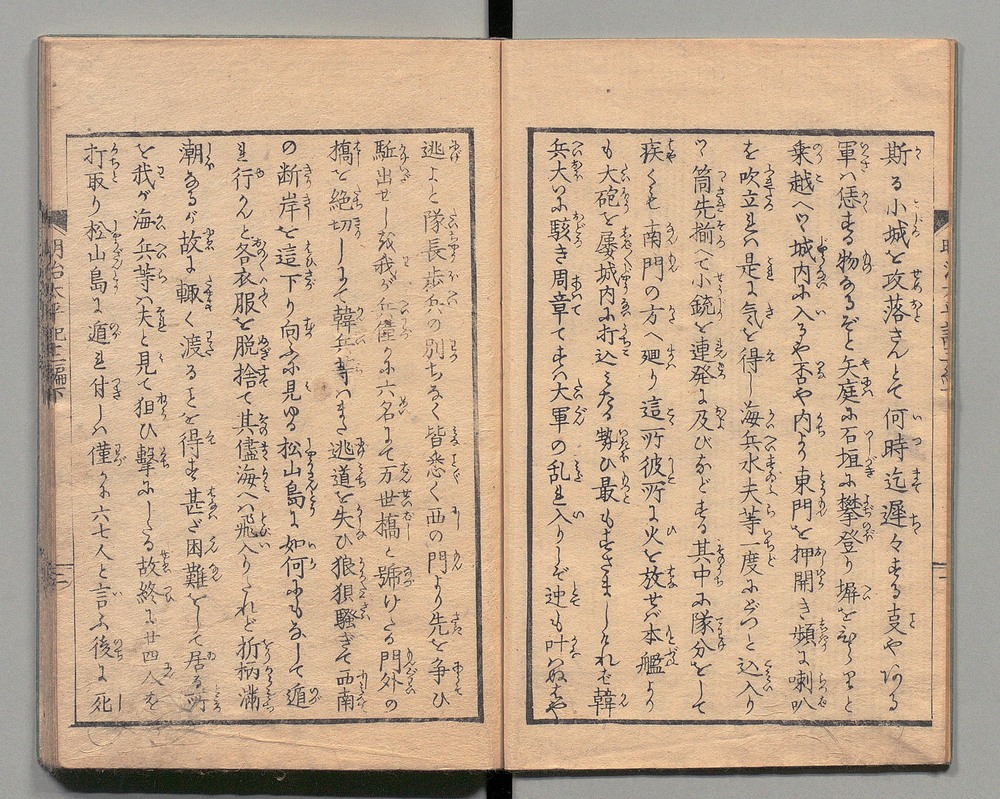 斯る小城を攻落さんとて何時迄遅々する事やある
軍ハ恁する物なるぞと矢庭に石垣に攀登り塀をひらりと
乗越へツ城内に入るや否や内より東門を押開き頻に喇叭
を吹立れハ是に気を得し海兵水夫等一度にどつと込入り
ツ筒先揃へて小銃を連発に及びなどする其中に隊分をして
疾くも南門の方へ廻り這所彼所に火を放せバ本艦より
も大砲を屡城内に打込ミたる勢ひ最もすさましけれバ韓
兵大いに駭き周章てすハ大軍の乱れ入りしぞ迚も叶ハぬはや
逃よと隊長歩兵の別ちなく皆悉く西の門より先を争ひ
駈出せしを我が兵僅かに六名にて万世橋と号けたる門外の
橋を絶切しにて韓兵等ハます逃道を失ひ狼狽騒ぎて西南
の断岸を這下り向ふに見ゆる松山島に如何にもなして遁
れ行んと各衣服を脱捨て其儘海へ飛入りたれど折柄満
潮なるが故に輙く渡ることを得ず甚ざ困難をして居る所
を我が海兵等ハ夫と見て狙ひ撃にしたる故終に廿四人を
打取り松山島に遁れ付しハ僅かに六七人と言ふ後に死
明治太平記十二編下